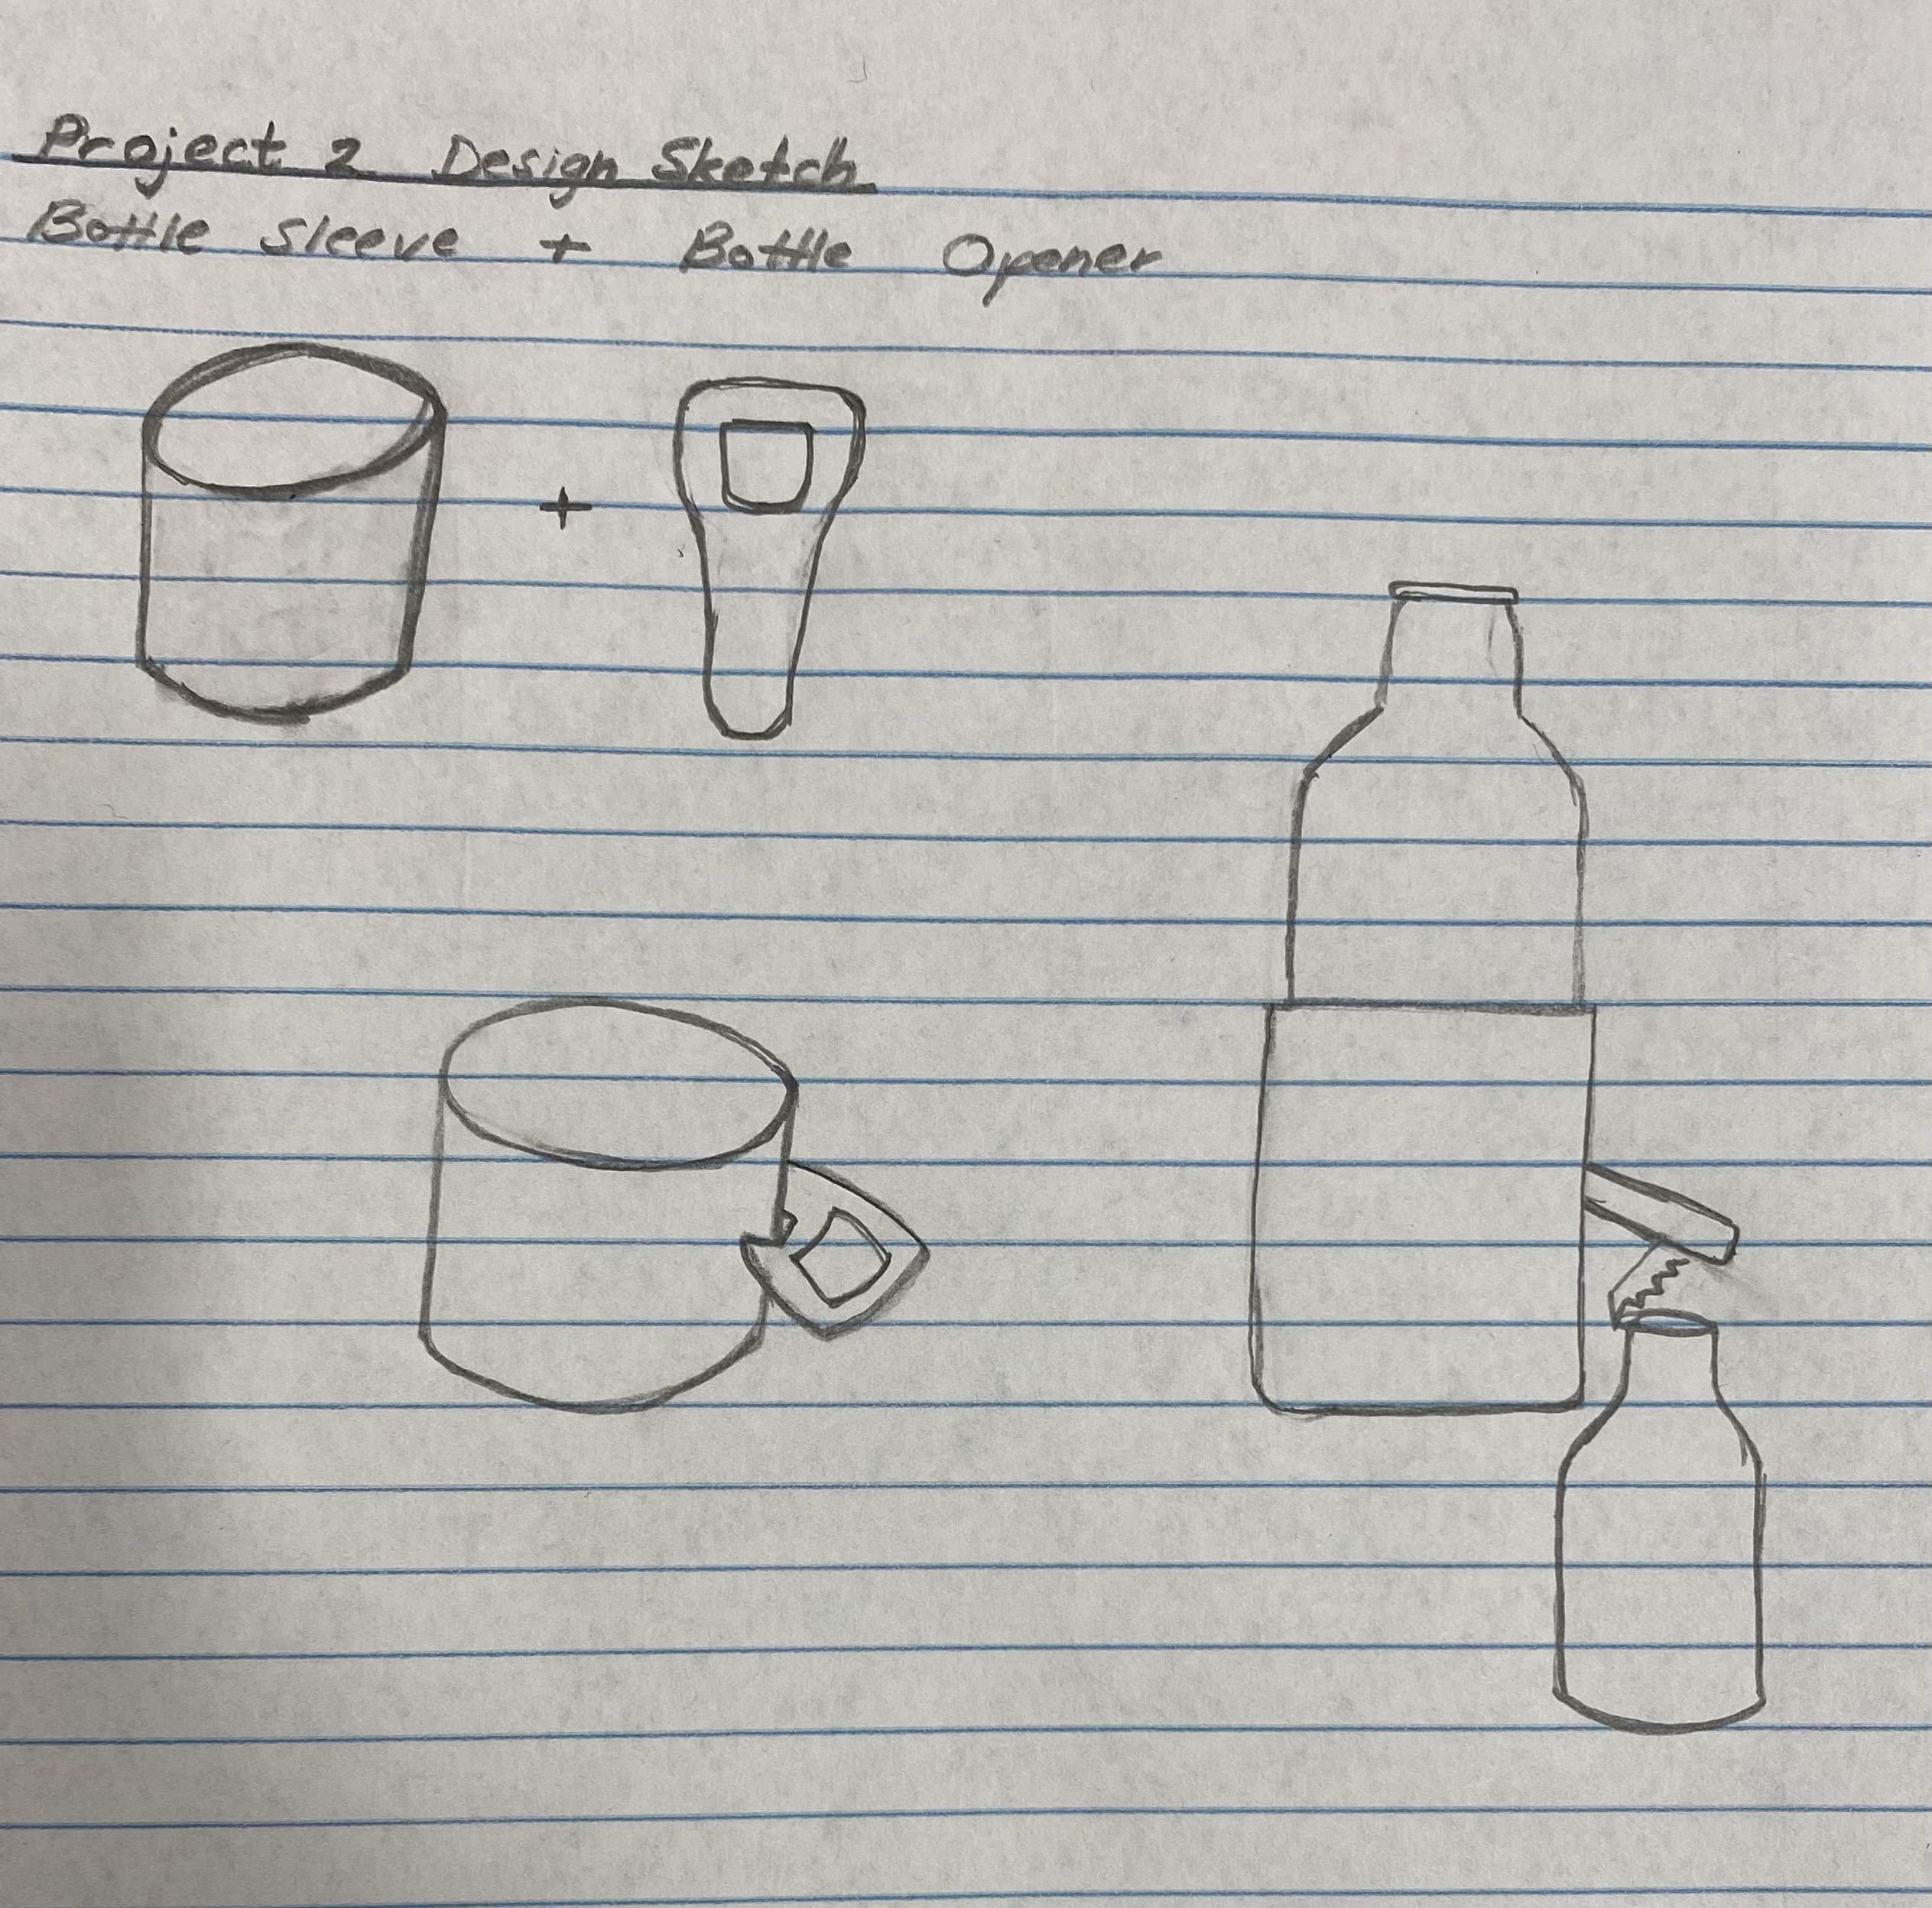 Project 2 Design Sketch
Bottle sleeve + Bottle Opener
+